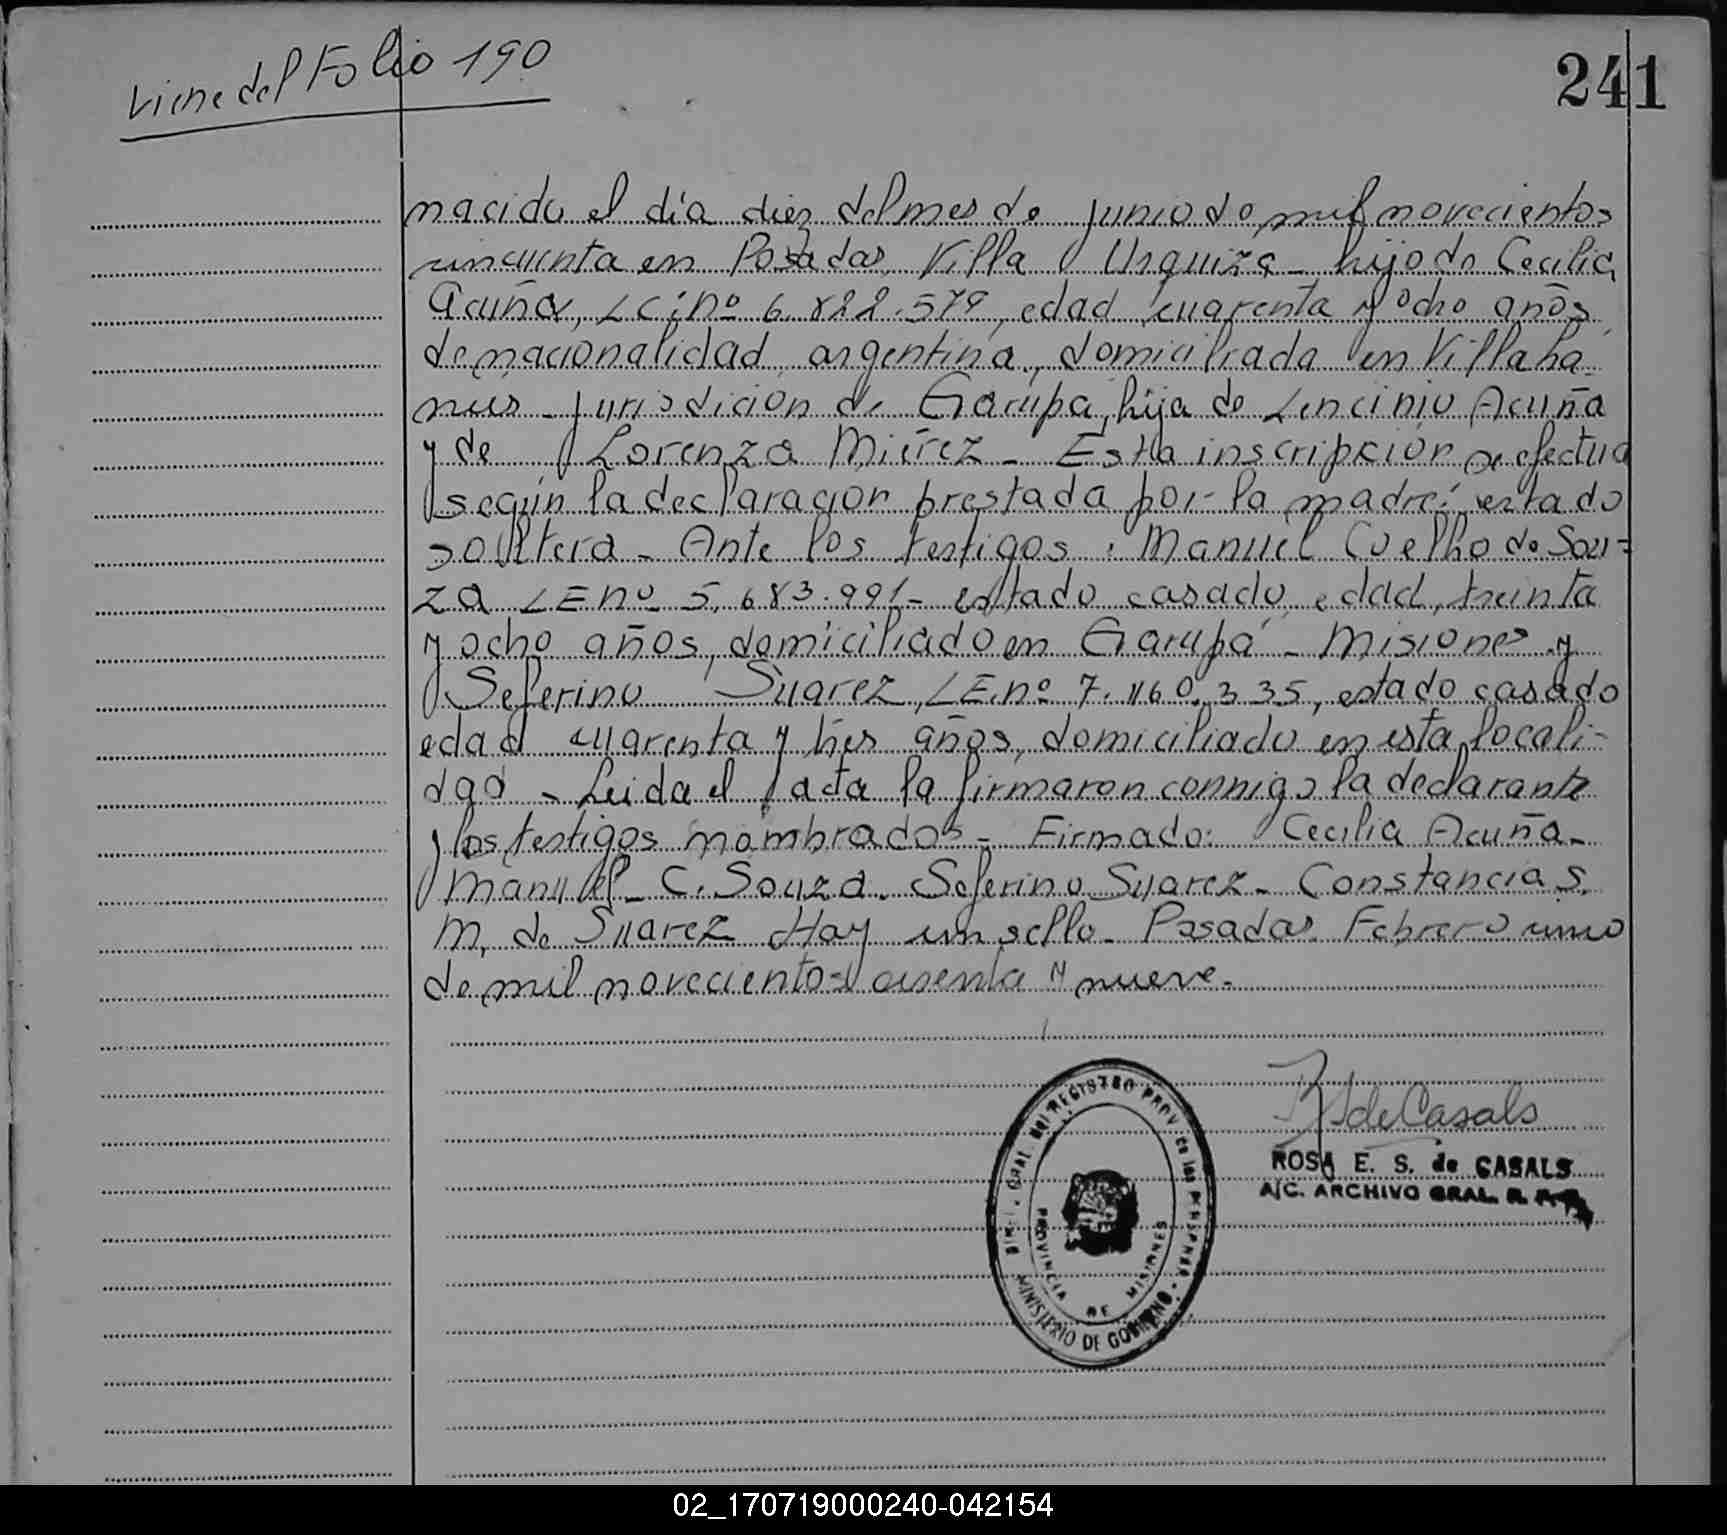 Viene del Folio 190
241
nacido el día diez del mes de junio de mil novecientos
cincuenta en Posadas, Villa Urquiza - hijo de Cecilia
Acuña, LC; nº 6.822.579, edad cuarenta y ocho años
de nacionalidad argentina, domiciliada en Villa La-
nús - jurisdición de Garupa, hija de Lencinio Acuña
y de Lorenza Miérez - Esta inscripción se efectua
según la declaración prestada por la madre; estado
soltera - Ante los testigos: Manuel Coelho de Sou-
za LE nº 5.683.991 - estado casado, edad, treinta
y ocho años, domiciliado en Garupá - Misiones y
Seferino Suarez, LE. nº 7.460.335, estado casado
edad cuarenta y tres años, domiciliado en esta locali-
dad - Leida el acta la firmaron conmigo la declarante
y los testigos nombrados - Firmado: Cecilia Acuña -
Manuel C. Souza. Seferino Suarez - Constancia S.
M. de Suarez Hay un sello - Posadas, Febrero uno
de mil novecientos nueve.
R S de Casals
ROSA E. S. de CASALS
A/C. ARCHIVO GRAL. R. P.
DIREC. GRAL. del REGISTRO PROV. de las PERSONAS
PROVINCIA DE MISIONES
MINISTERIO DE GOBIERNO
02_170719000240-042154